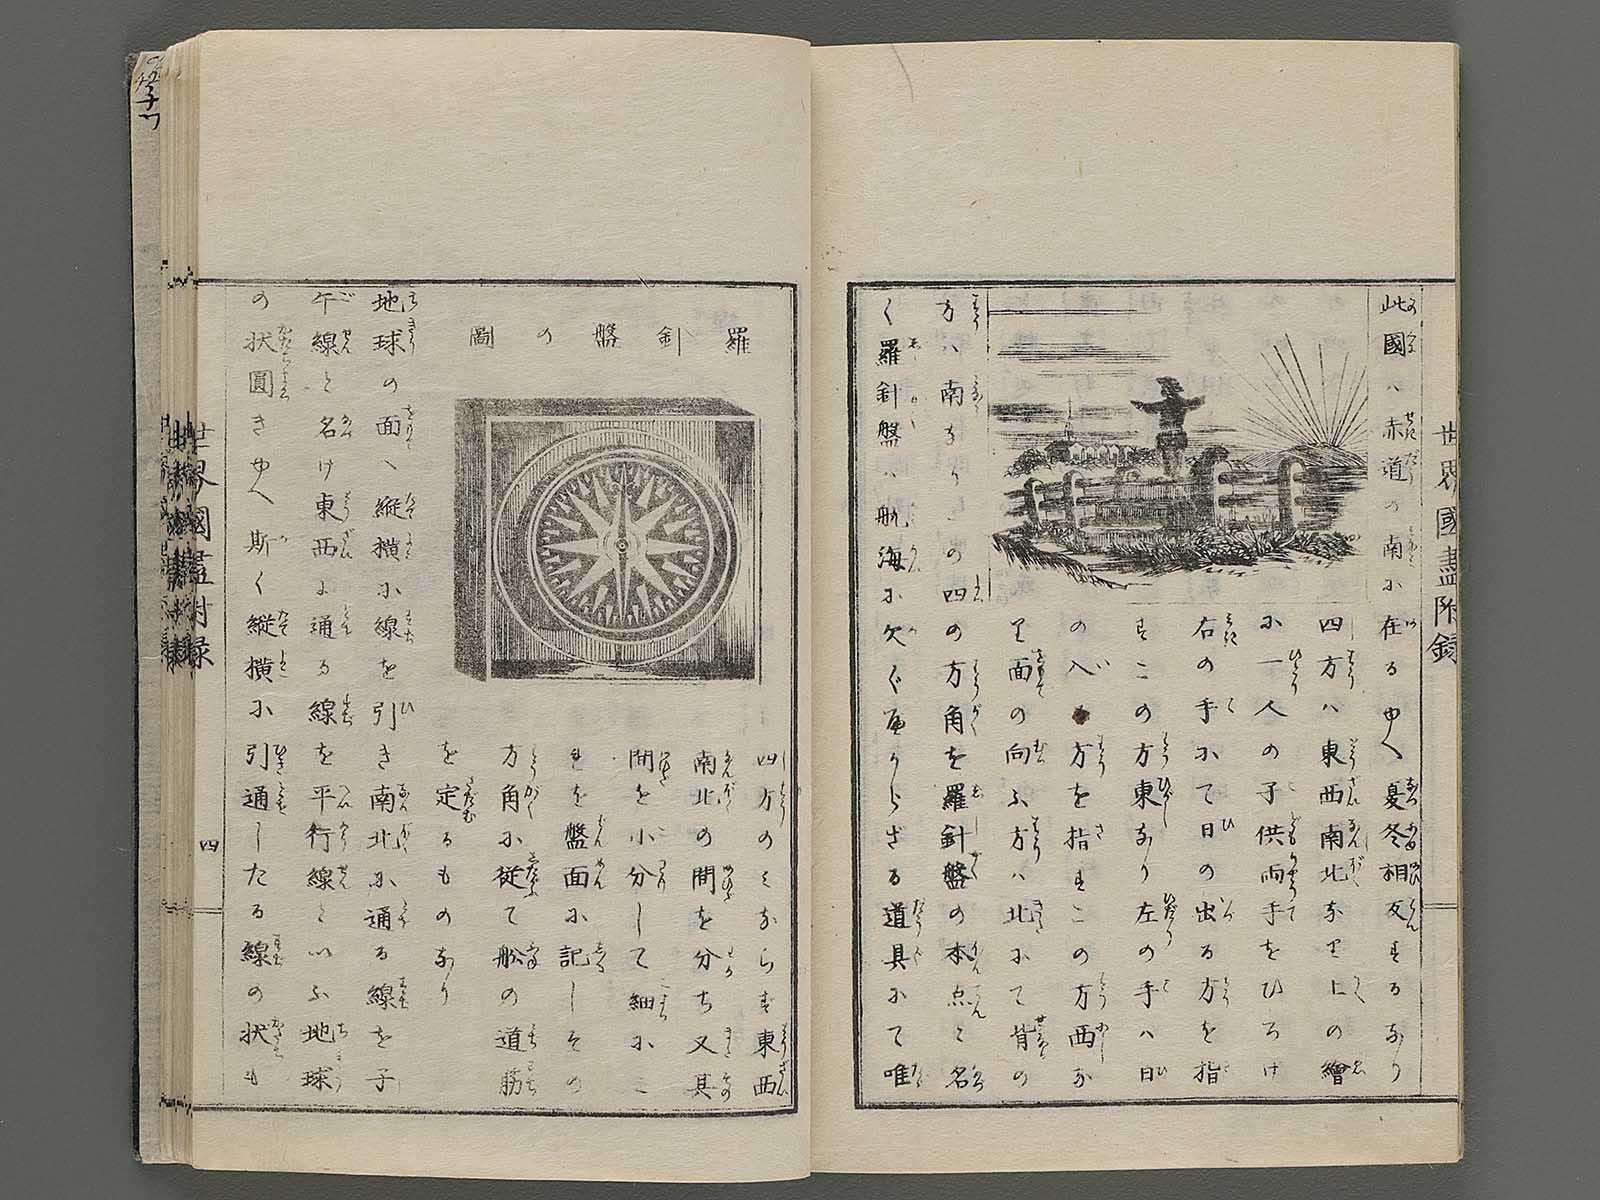 世界國盡附録
此國ハ赤道の南に在るゆへ夏冬相反するなり
四方ハ東西南北なり上の繪
に一人の子供両手をひろげ
右の手にて日の出る方を指
すこの方東なり左の手ハ日
の入る方を指すこの方西な
り面の向ふ方ハ北にて背の
方ハ南なりこの四の方角を羅針盤の本点と名
く羅針盤ハ航海に欠くべからざる道具にて唯
羅針盤の圖
四方のみならず東西
南北の間を分ち又其
間を小分して細にこ
れを盤面に記しその
方角に従て舩の道筋
を定るものなり
地球の面へ縦横に線を引き南北に通る線を子
午線と名け東西に通る線を平行線といふ地球
の状圓きゆへ斯く縦横に引通したる線の状も
世界國盡附録
四